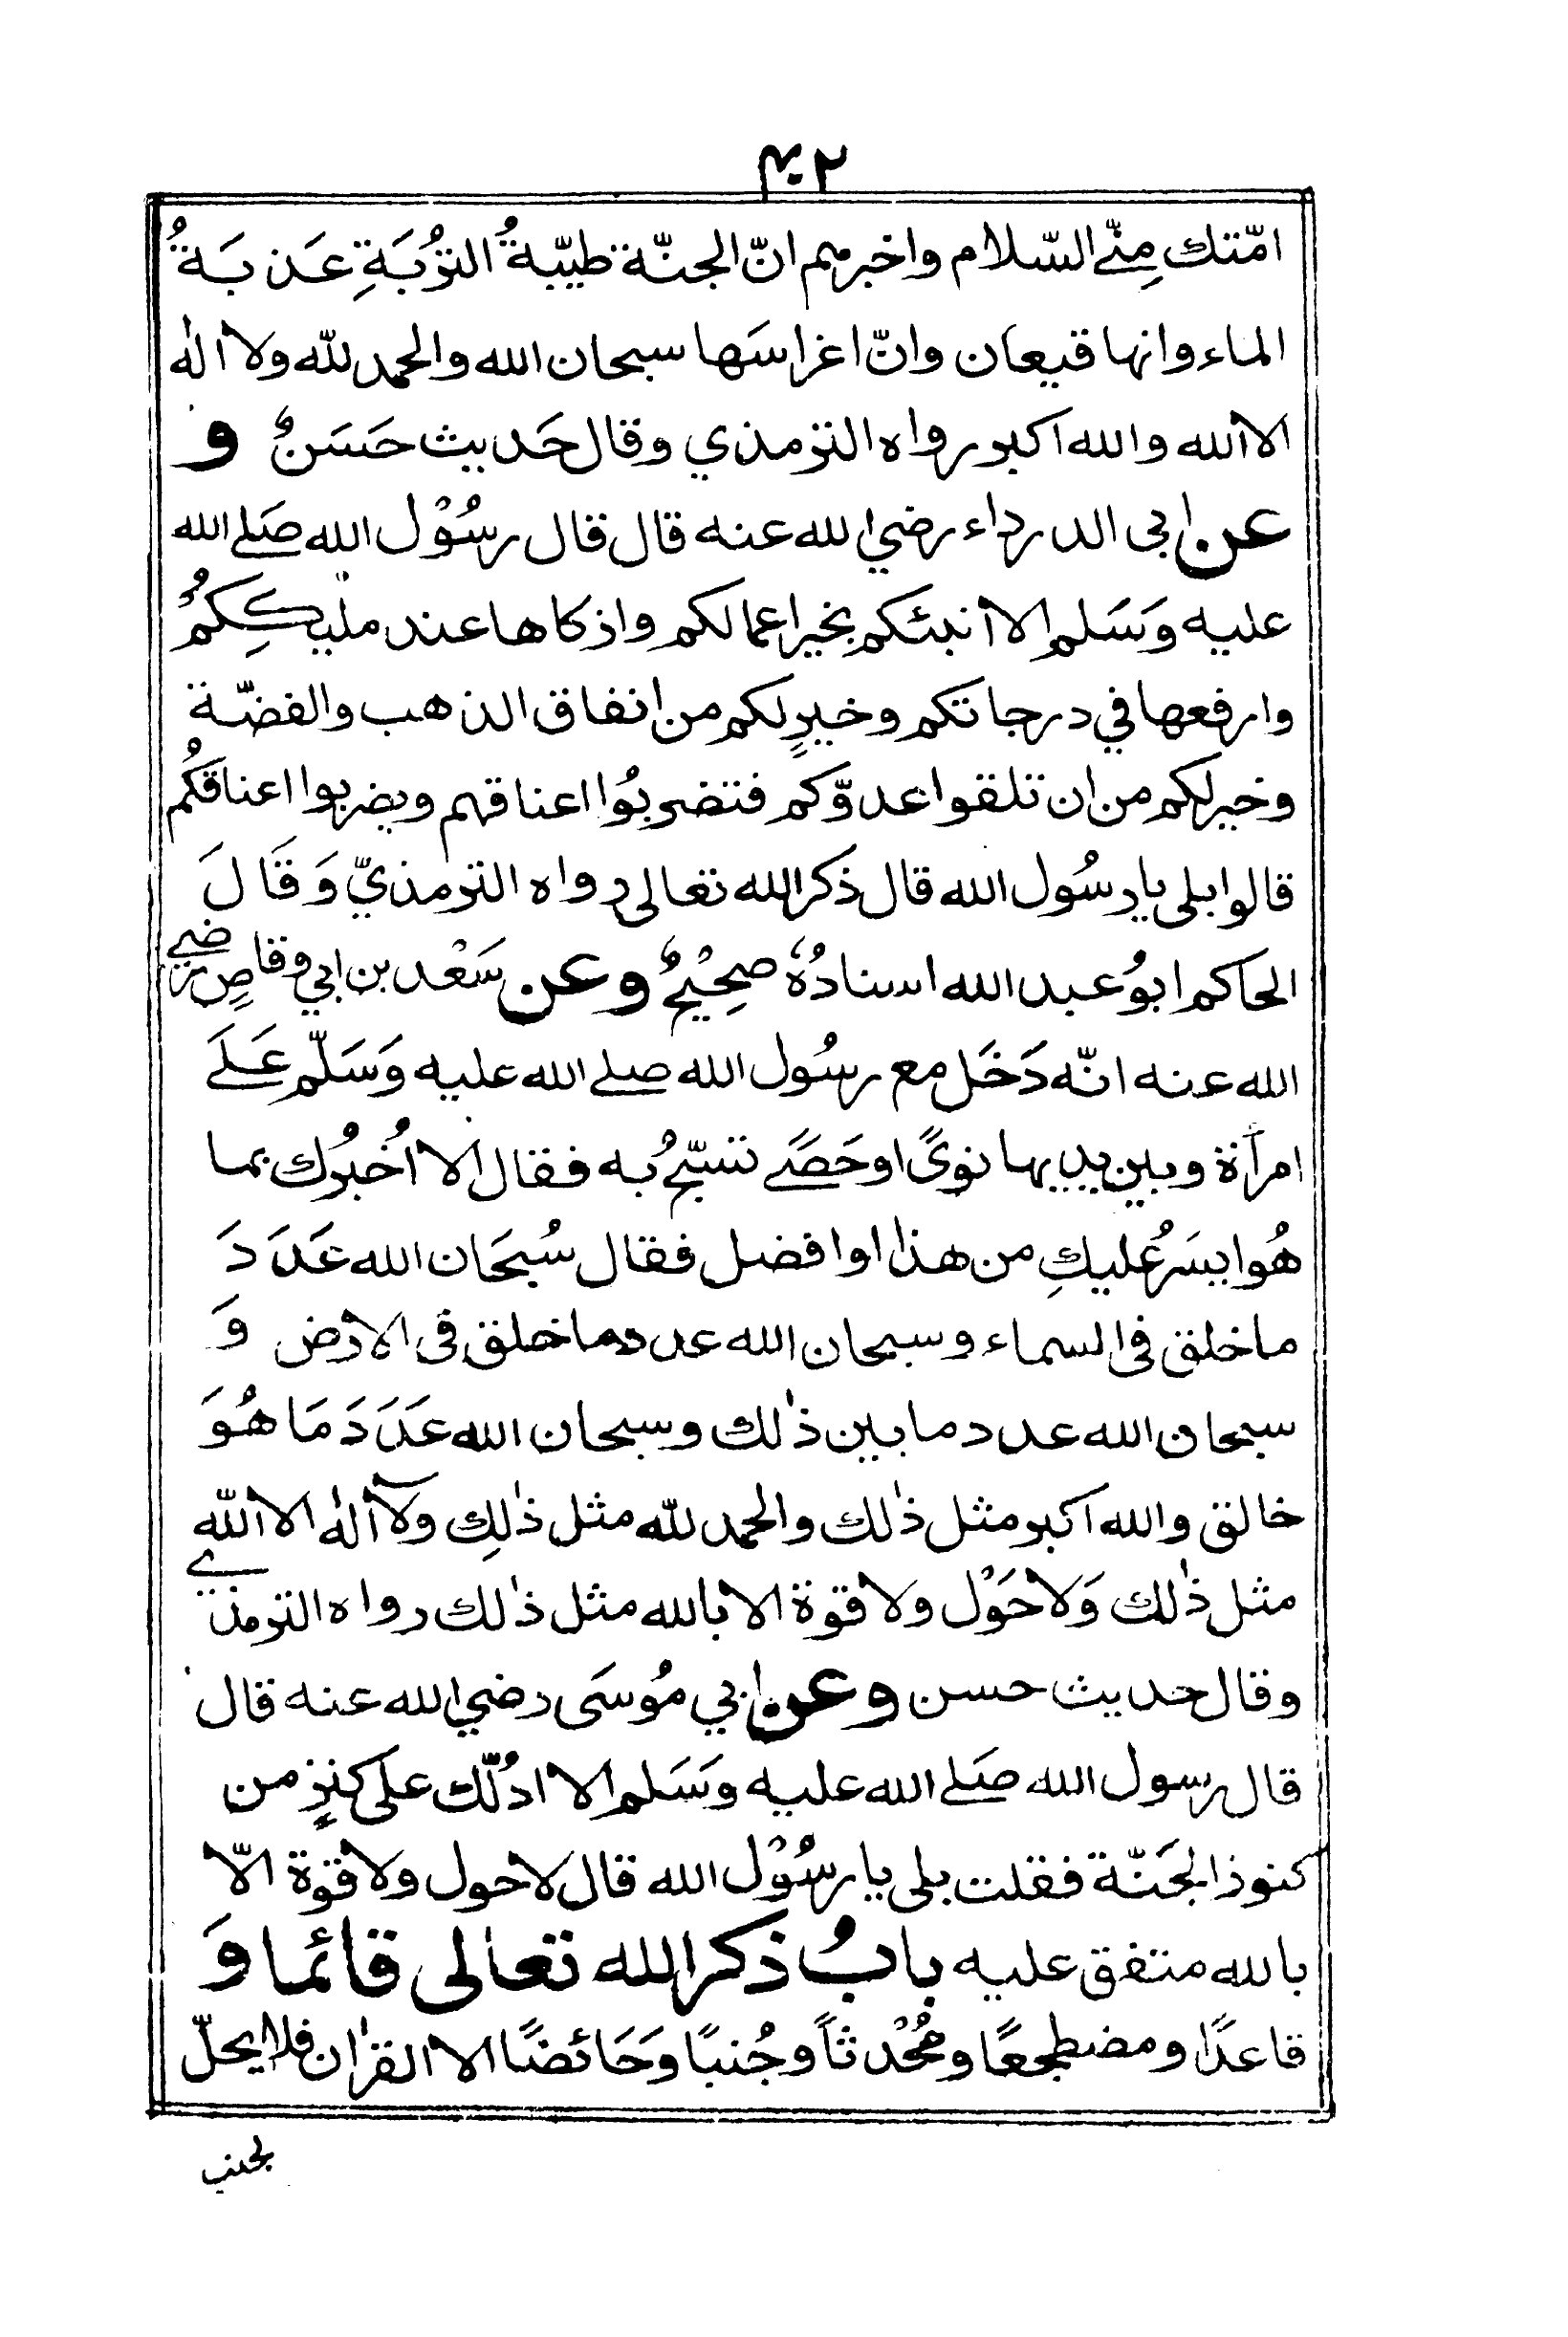 ٤٠٢
امّتك مِنّے السّلام واخبرهم انّ الجنّة طيّبةُ التُّربَةِ عَذبَةُ
الماء وانها قيعان وانّ اغراسَها سبحان الله والحمد للّه ولا اله
الا الله والله اكبر رواه الترمذي وقال حَديث حَسَنٌ و
عن ابى الدرداء رضي الله عنه قال قال رسُوْل الله صَلے الله
عليه وَسَلم الا أنبئكم بخير اعمالكم واذكاها عند مليكِكُمْ
وارفعها في درجاتكم وخيرٍ لكم من انفاق الذهب والفضّة
وخير لكم من ان تلقوا عدوّكم فتضربُوا اعناقهم ويضربوا اعناقكُم
قالوا بلى يا رسُول الله قال ذكر الله تعالى رواه الترمذيّ وَقَالَ
الحاكم ابوُ عبد الله اسنادُهٗ صحِيْحٌ وعن سَعْد بن ابي وقاصٍ رضے
الله عنه انّه دَخَل مع رسُول الله صلے الله عليه وَسَلّم عَلَے
امرأة وبين يديها نوىً او حَصَے تسَبّحُ به فقال الا اُخبرُك بما
هُو ايسَرُ عليكِ من هذا او افضل فقال سُبحَان الله عَدَدَ
ما خلق في السماء وسبحان الله عدد ما خلق فى الارض وَ
سبحان الله عدد ما بين ذٰلك وسبحان الله عَدَدَ مَا هُوَ
خالق والله اكبر مثل ذٰلك والحمد للّه مثل ذٰلِك ولآ اله الا اللّه
مثل ذٰلك وَلا حَوْل ولا قوة الا بالله مثل ذٰلك رواه الترمذي
وقال حديث حسن وعن ابي مُوسَى رضي الله عنه قال
قال رسول الله صَلے الله عليه وَسَلم الا ادُلّك على كنزٍ من
كنوز الجَنّة فقلت بلى يا رسُوْل الله قال لا حول ولا قوة الّا
بالله متفق عليه بابُ ذكر الله تعالى قائما وَ
قاعدًا ومضطجعًا ومُحْدثاً وجُنبًا وَحَائضًا الا القراٰن فلا يحلّ
لجنب